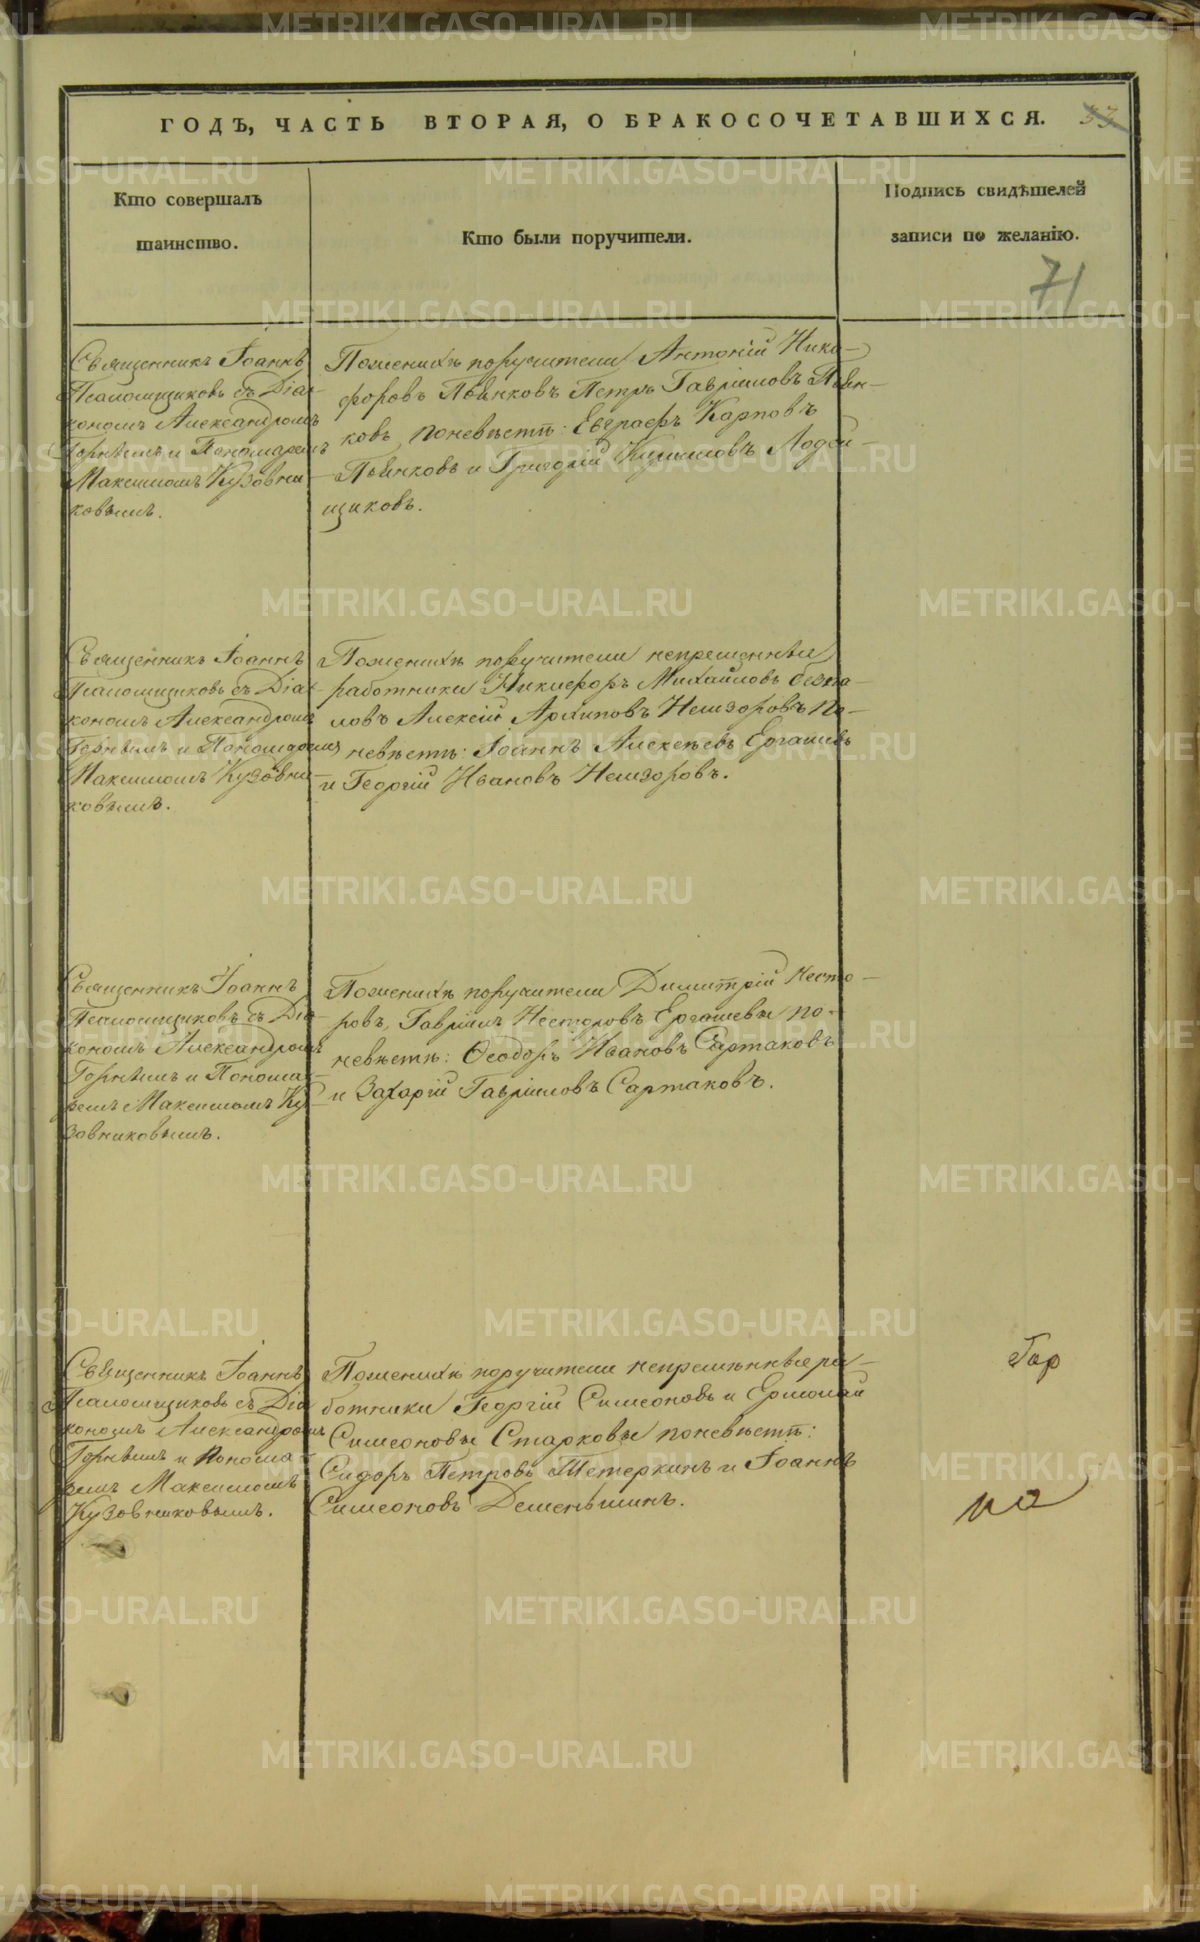 ГОДЪ, ЧАСТЬ ВТОРАЯ, О БРАКОСОЧЕТАВШИХСЯ. 33
Кто совершалъ
таинство.
Кто были поручители.
Подпись свидѣтелей
записи по желанію.
71
Священникъ Іоаннъ
Псаломщиковъ съ Діа-
кономъ Александромъ
Горнымъ и Пономаремъ
Максимомъ Кузовни-
ковымъ.
По женихѣ поручители Антоній Ники-
форовъ Пьянковъ Петръ Гавріиловъ Пьян-
ковъ, по невѣстѣ: Евграфъ Карповъ
Пьянковъ и Григорій Кириловъ Лодей-
щиковъ.
Священникъ Іоаннъ
Псаломщиковъ съ Діа-
кономъ Александромъ
Горнымъ и Пономаремъ
Максимомъ Кузовни-
ковымъ.
По женихѣ поручители непременные
работники Никифоръ Михайловъ
ловъ Алексій Архиповъ Немзоровъ по-
невѣстѣ: Іоаннъ Алексѣевъ Ергашевъ
и Георгій Ивановъ Немзоровъ.
Священникъ Іоаннъ
Псаломщиковъ съ Діа-
кономъ Александромъ
Горнымъ и Понома-
ремъ Максимомъ Ку-
зовниковымъ.
По женихѣ поручители Димитрій Несто-
ровъ, Гавріилъ Несторовъ Ергашевы по-
невѣстѣ: Ѳеодоръ Ивановъ Сартаковъ
и Захарій Гавріиловъ Сартаковъ.
Священникъ Іоаннъ
Псаломщиковъ съ Діа-
кономъ Александромъ
Горнымъ и Понома-
ремъ Максимомъ
Кузовниковымъ.
По женихѣ поручители непремѣнные ра-
ботники Георгій Симеоновъ и Ермолай
Симеоновы Старковы по невѣстѣ:
Сидоръ Петровъ Тетеркинъ и Іоаннъ
Симеоновъ Деменьшинъ.
Гор
METRIKI.GASO-URAL.RU